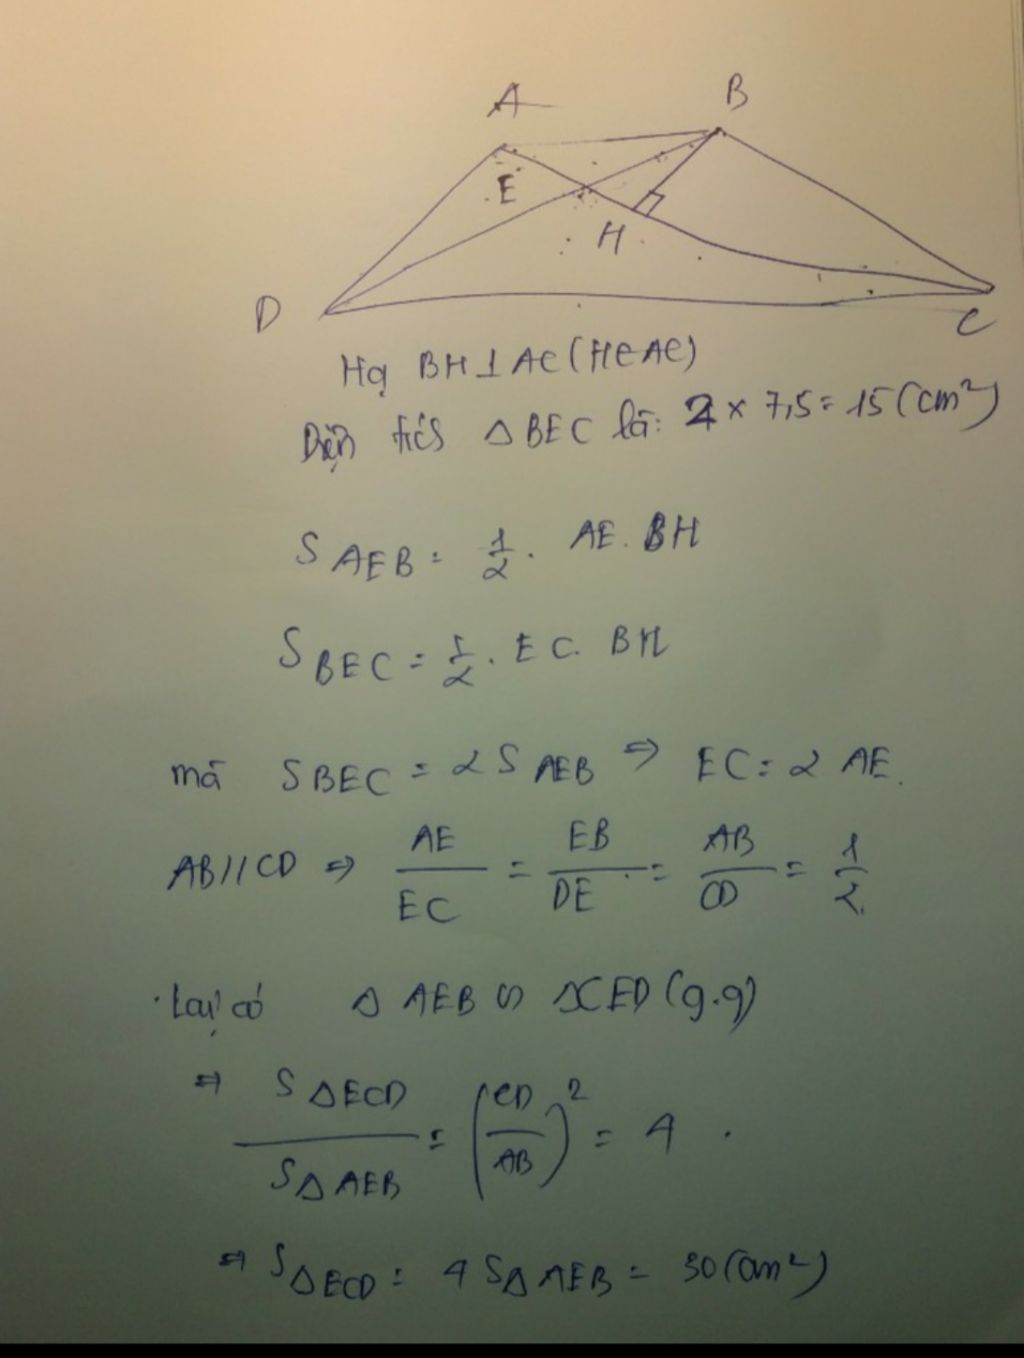 A B
E
H
D C
Hạ BH ⊥ AC (H∈AC)
Diện tích Δ BEC là: 2 × 7,5 = 15 (cm²)
S AEB = 1/2 . AE. BH
S BEC = 1/2 . EC. BH
mà S BEC = 2 S AEB ⇒ EC = 2 AE.
AB // CD ⇒ AE/EC = EB/DE = AB/CD = 1/2.
Lại có Δ AEB ∽ ΔCED (g.g)
⇒ S ΔECD / S Δ AEB = (CD/AB)² = 4.
⇒ S ΔECD = 4 S Δ AEB = 30 (cm²)